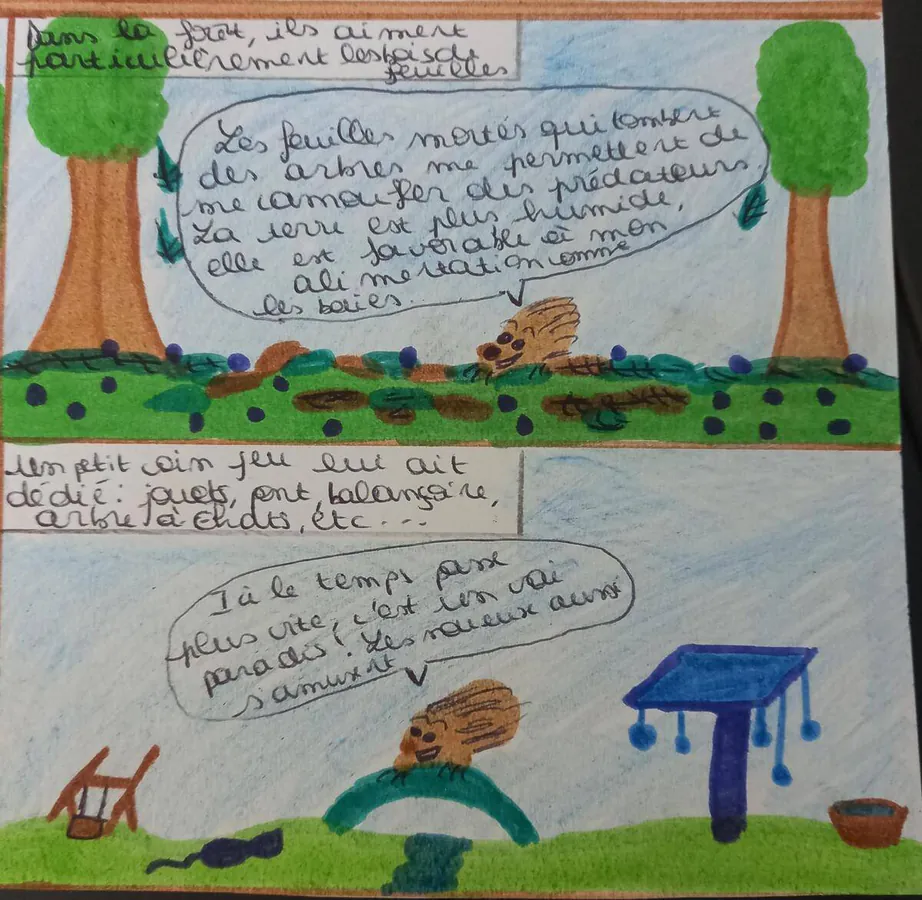 Dans la forêt, ils aiment
particulièrement les bois de
feuilles
Les feuilles mortes qui tombent
des arbres me permettent de
me camoufler des prédateurs.
La terre est plus humide,
elle est favorable à mon
alimentation comme
les baies.
Un petit coin jeu lui ait
dédié : jouets, pont, balançoire,
arbre à chats, etc...
Ici le temps passe
plus vite, c'est un vrai
paradis ! Les
aussi
s'amusent